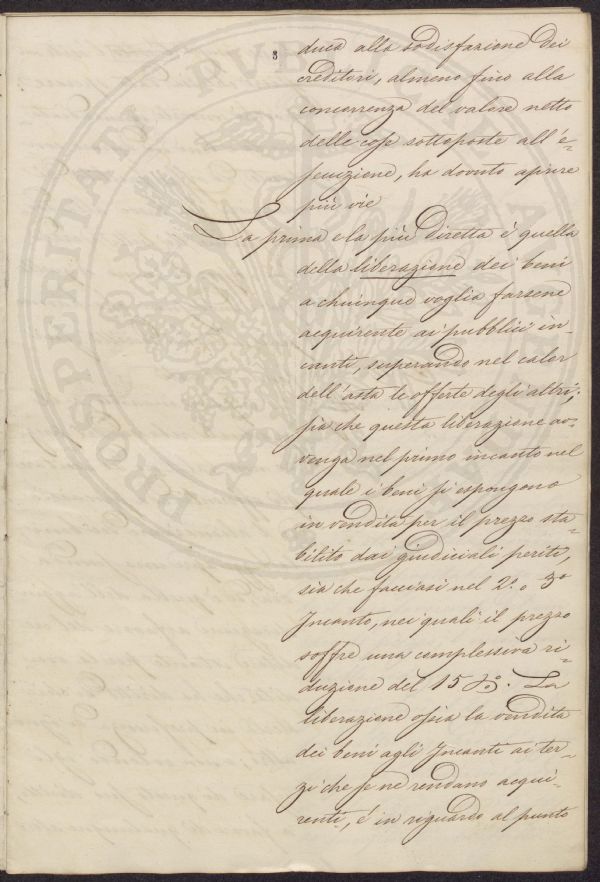 3
duca alla sodisfazione dei
creditori, almeno fino alla
concorrenza del valore netto
delle cose sottoposte all'e=
secuzione, ha dovuto aprire
più vie
La prima e la più diretta è quella
della liberazione dei beni
a chiunque voglia farsene
acquirente ai pubblici in=
canti, superando nel calor
dell'asta le offerte degli altri;
sia che questa liberazione av=
venga nel primo incanto nel
quale i beni si espongono
in vendita per il prezzo sta=
bilito dai giudiciali periti,
sia che facciasi nel 2.º o 3.º
Incanto, nei quali il prezzo
soffre una complessiva ri=
duzione del 15 %. La
liberazione ossia la vendita
dei beni agli Incanti ai ter=
zi che se ne rendano acqui=
renti, è in riguardo al punto
PROSPERITATI PVBL